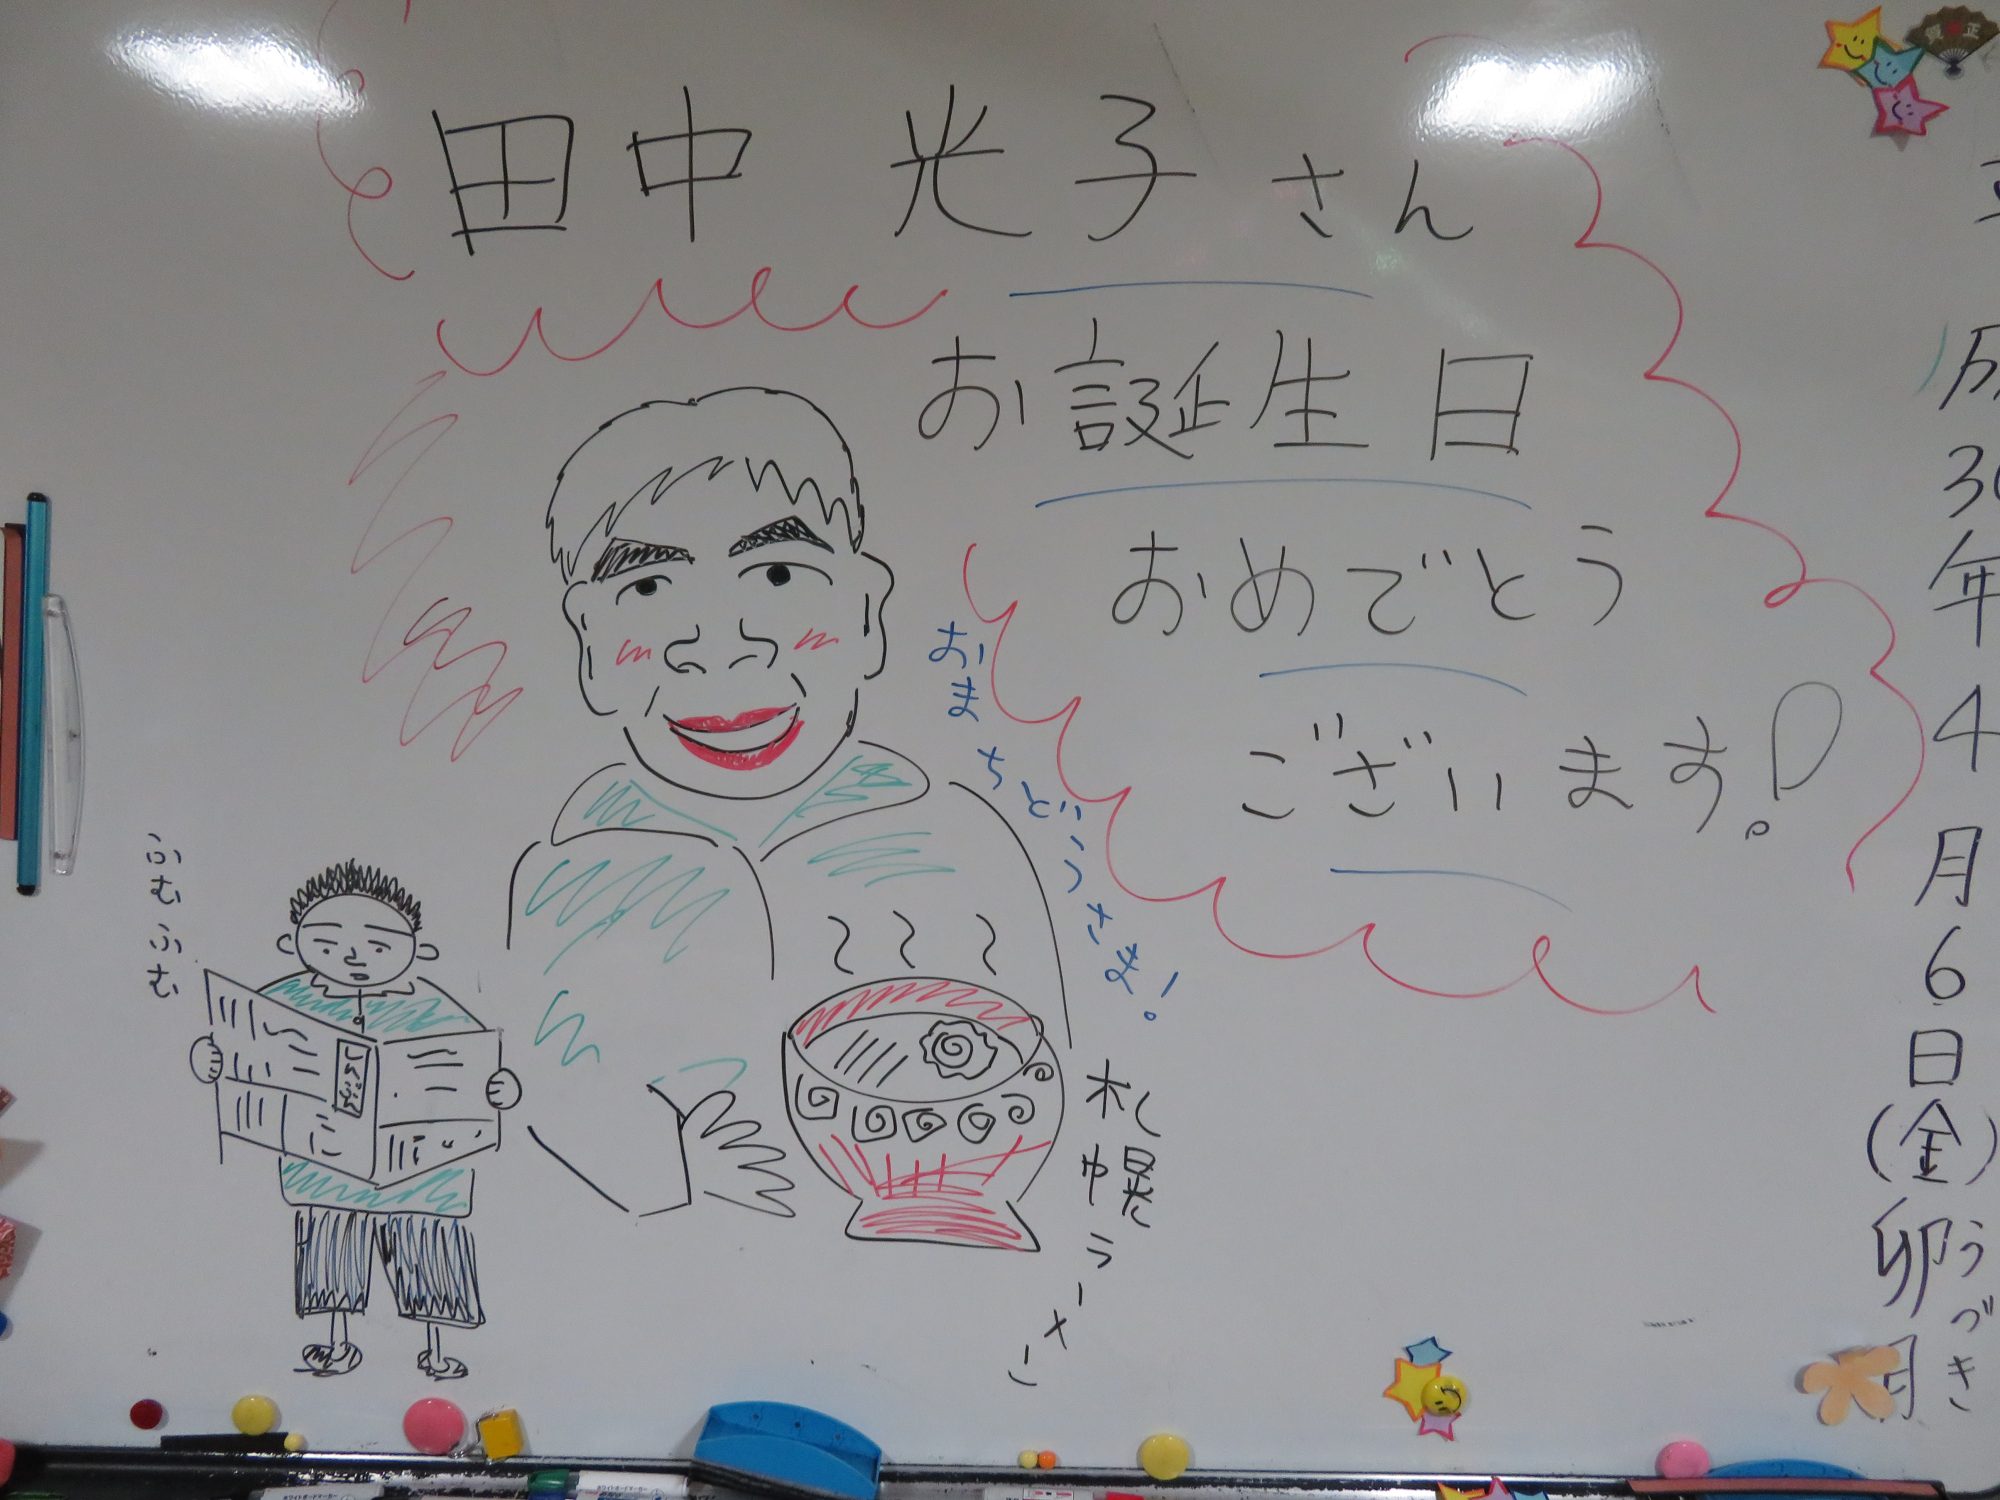 田中 光子さん
お誕生日
おめでとう
ございます!
おまちどうさま!
札幌ラーメン
ふむふむ
30年4月6日(金)
卯月
うづき